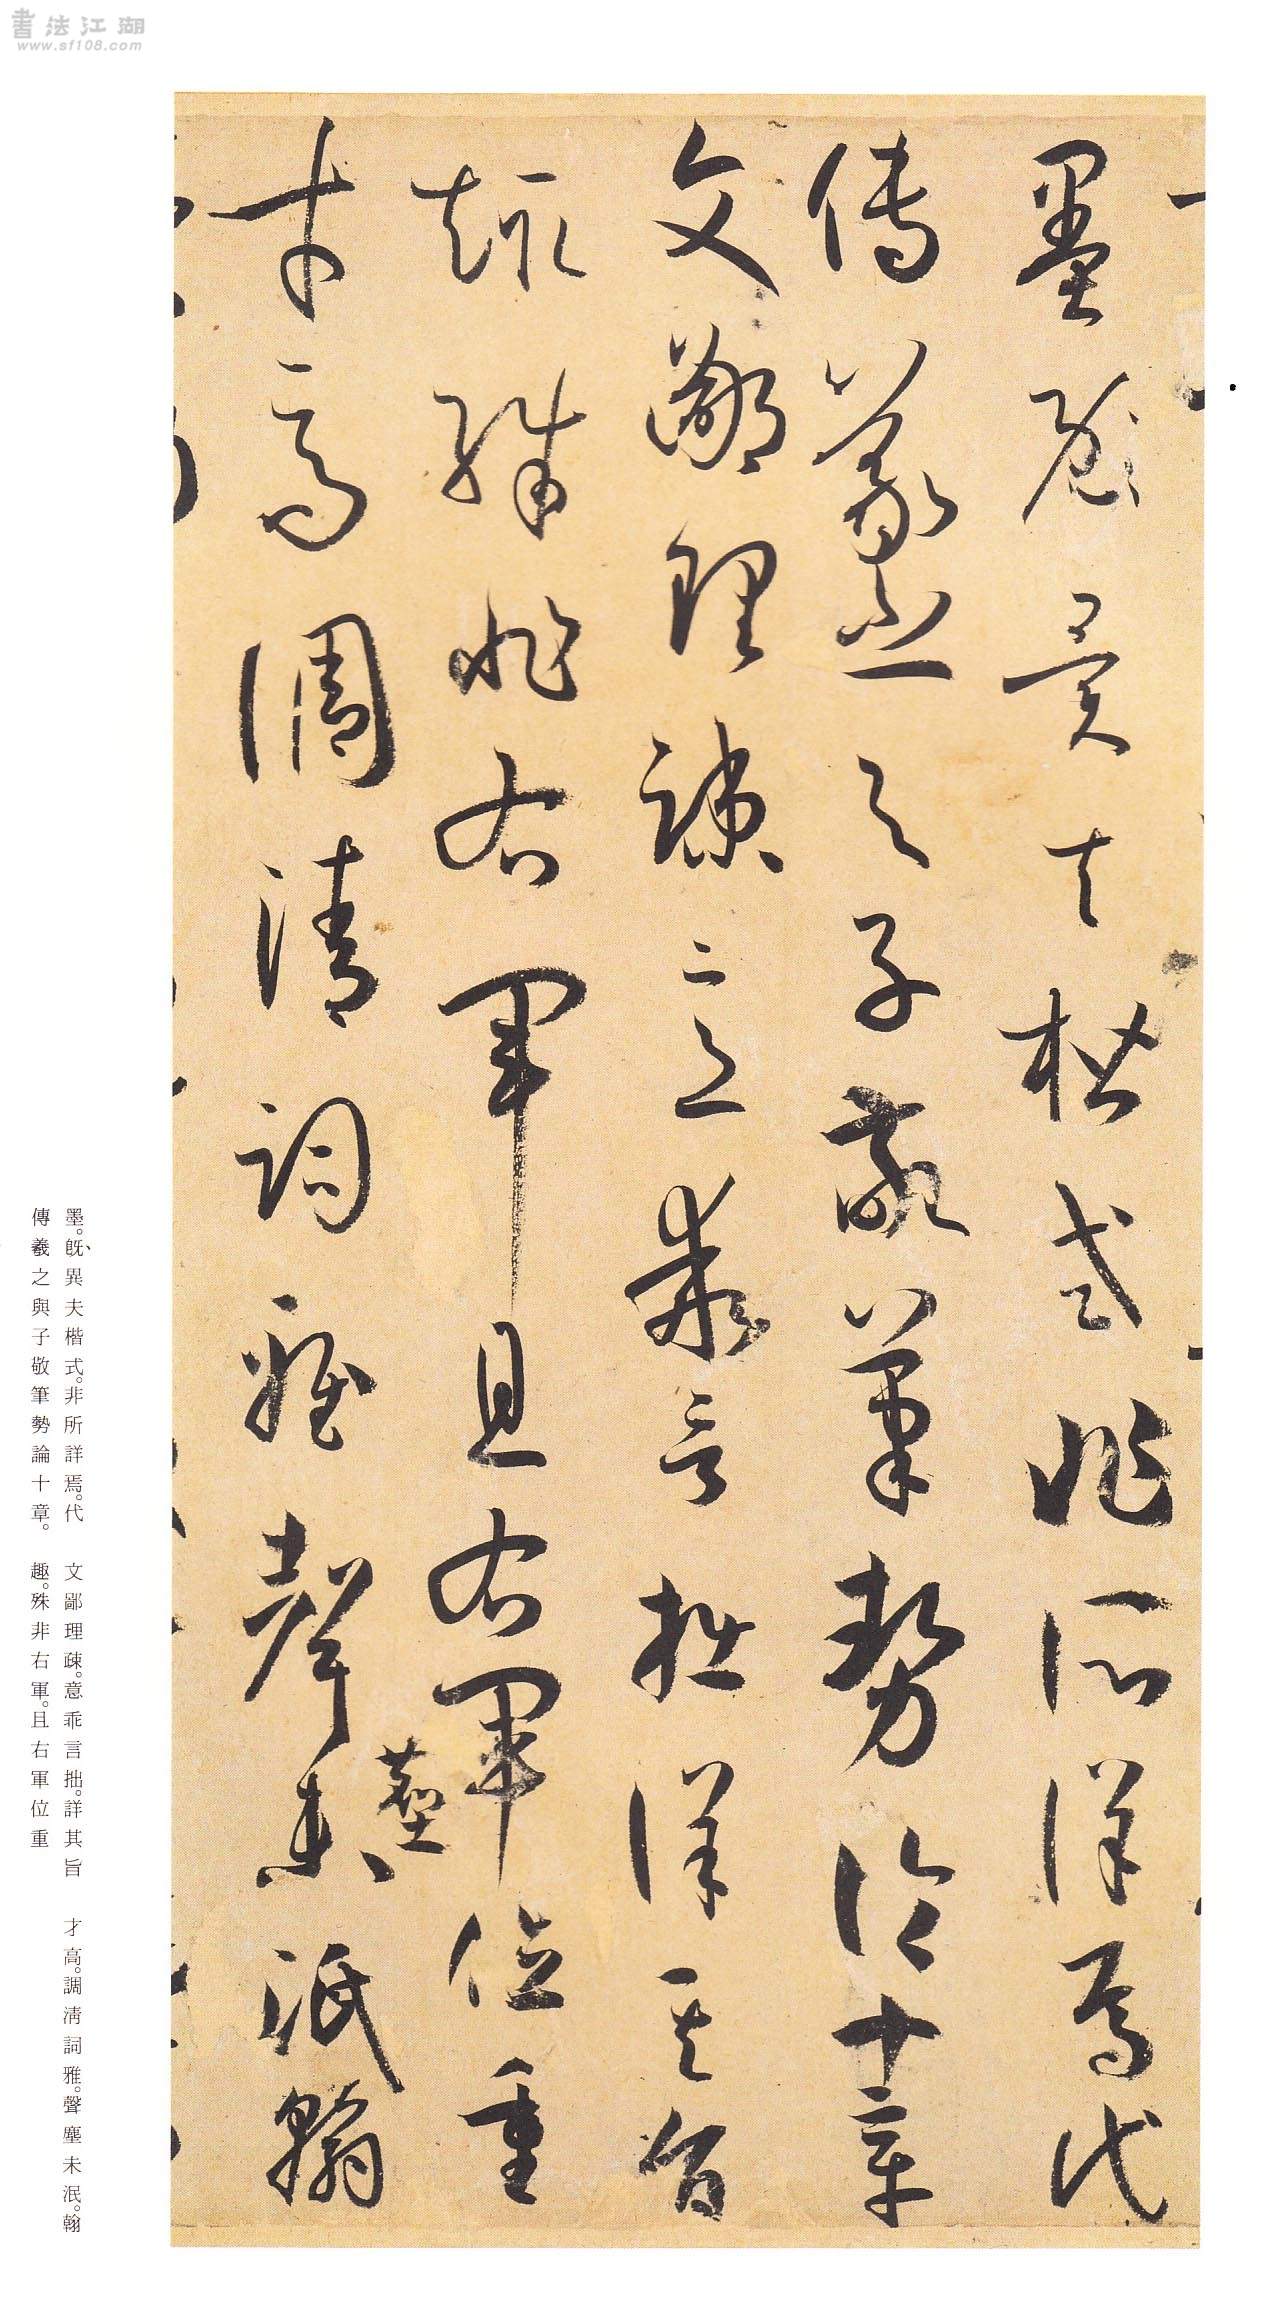 書法江湖
www.sf108.com
墨既異夫楷式非所詳焉代
傳羲之與子敬筆勢論十章
文鄙理疎意乖言拙詳其旨
趣殊非右軍且右軍位重
才高調清詞雅聲塵未泯翰
墨。旣異夫楷式。非所詳焉。代
傳羲之與子敬筆勢論十章。
文鄙理疎。意乖言拙。詳其旨
趣。殊非右軍。且右軍位重
才高。調淸詞雅。聲塵未泯。翰